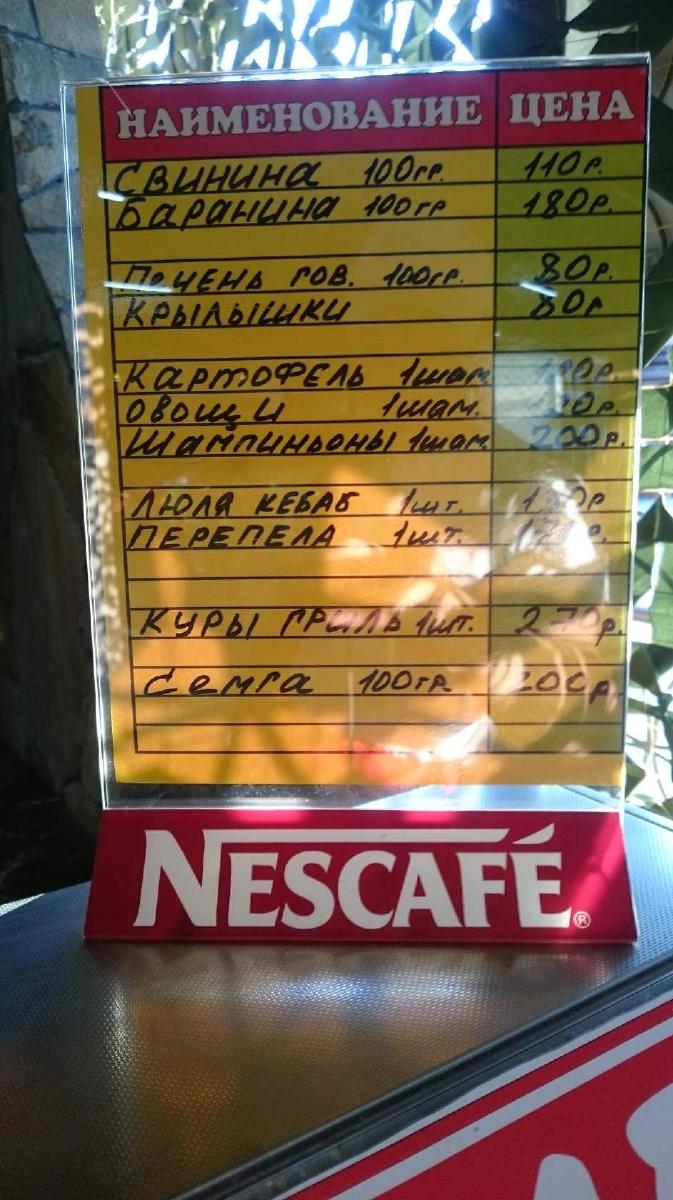 НАИМЕНОВАНИЕ ЦЕНА
Свинина 100гр. 110р.
Баранина 100гр 180р.
Печень гов. 100гр. 80р.
Крылышки 80р
Картофель 1шам
Овощи 1шам. 120р.
Шампиньоны 1шам 200р.
Люля кебаб 1шт.
Перепела 1шт.
Куры гриль 1шт. 270р.
Семга 100гр 200р.
NESCAFÉ®